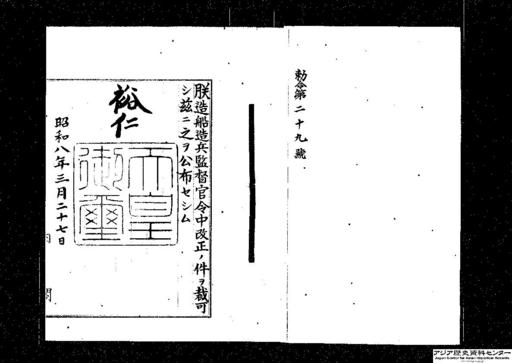 勅令第二十九號
朕造船造兵監督官令中改正ノ件ヲ裁可
シ茲ニ之ヲ公布セシム
裕仁
天皇御璽
昭和八年三月二十七日
内閣
アジア歴史資料センター
Japan Center for Asian Historical Records